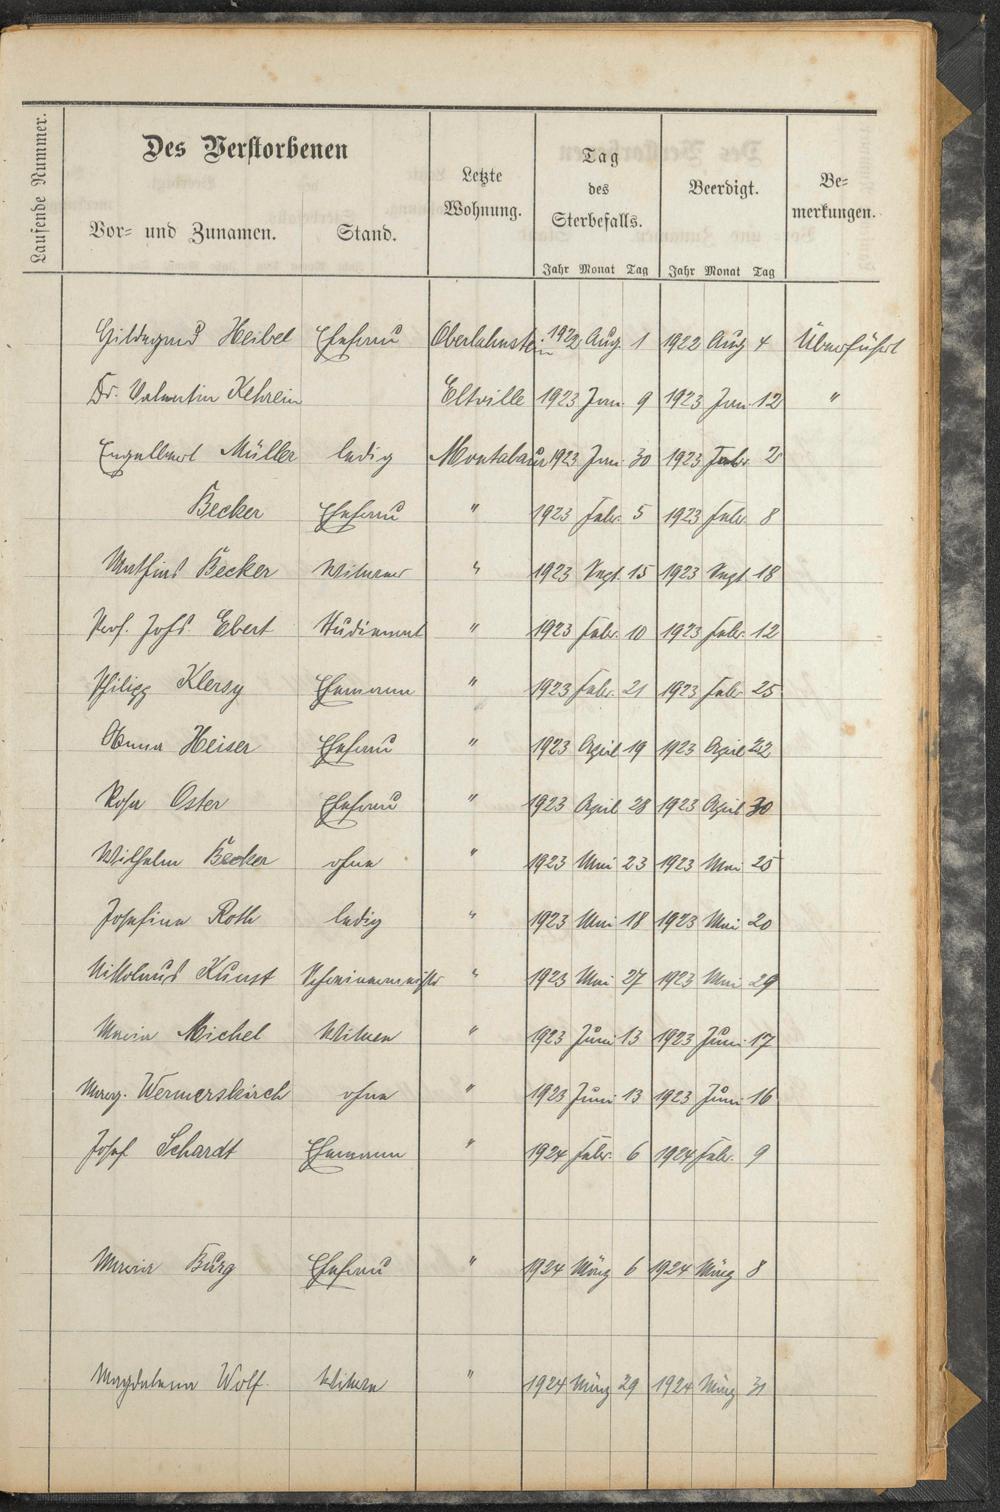 Laufende Nummer.
Des Verstorbenen
Vor= und Zunamen.
Stand.
Letzte Wohnung.
Tag des Sterbefalls.
Beerdigt.
Be=merkungen.
Jahr Monat Tag Jahr Monat Tag
Hildegard Heibel Ehefrau Oberlahnstein 1922 Aug. 1 1922 Aug 4 Überführt
Dr. Valentin Kehrein Eltville 1923 Jan. 9 1923 Jan. 12 "
Engelbert Müller ledig Montabaur 1923 Jan. 30 1923 Febr. 2
Becker Ehefrau " 1923 Febr. 5 1923 Febr. 8
Mathias Becker Witwer " 1923 Sept. 15 1923 Sept. 18
Prof. Johs. Ebert Studienrat " 1923 Febr. 10 1923 Febr. 12
Philipp Klersy Ehemann " 1923 Febr. 21 1923 Febr. 25
Anna Heiser Ehefrau " 1923 April 19 1923 April 22
Rosa Oster Ehefrau " 1923 April 28 1923 April 30
Wilhelm Becker ohne " 1923 Mai 23 1923 Mai 25
Josefine Roth ledig " 1923 Mai 18 1923 Mai 20
Nikolaus Kunst Schreinermeister " 1923 Mai 27 1923 Mai 29
Maria Michel Witwe " 1923 Juni 13 1923 Juni 17
Marg. Wermerskirch ohne " 1923 Juni 13 1923 Juni 16
Josef Schardt Ehemann " 1924 Febr. 6 1924 Febr. 9
Maria Burg Ehefrau " 1924 März 6 1924 März 8
Magdalena Wolf. Witwe " 1924 März 29 1924 März 31